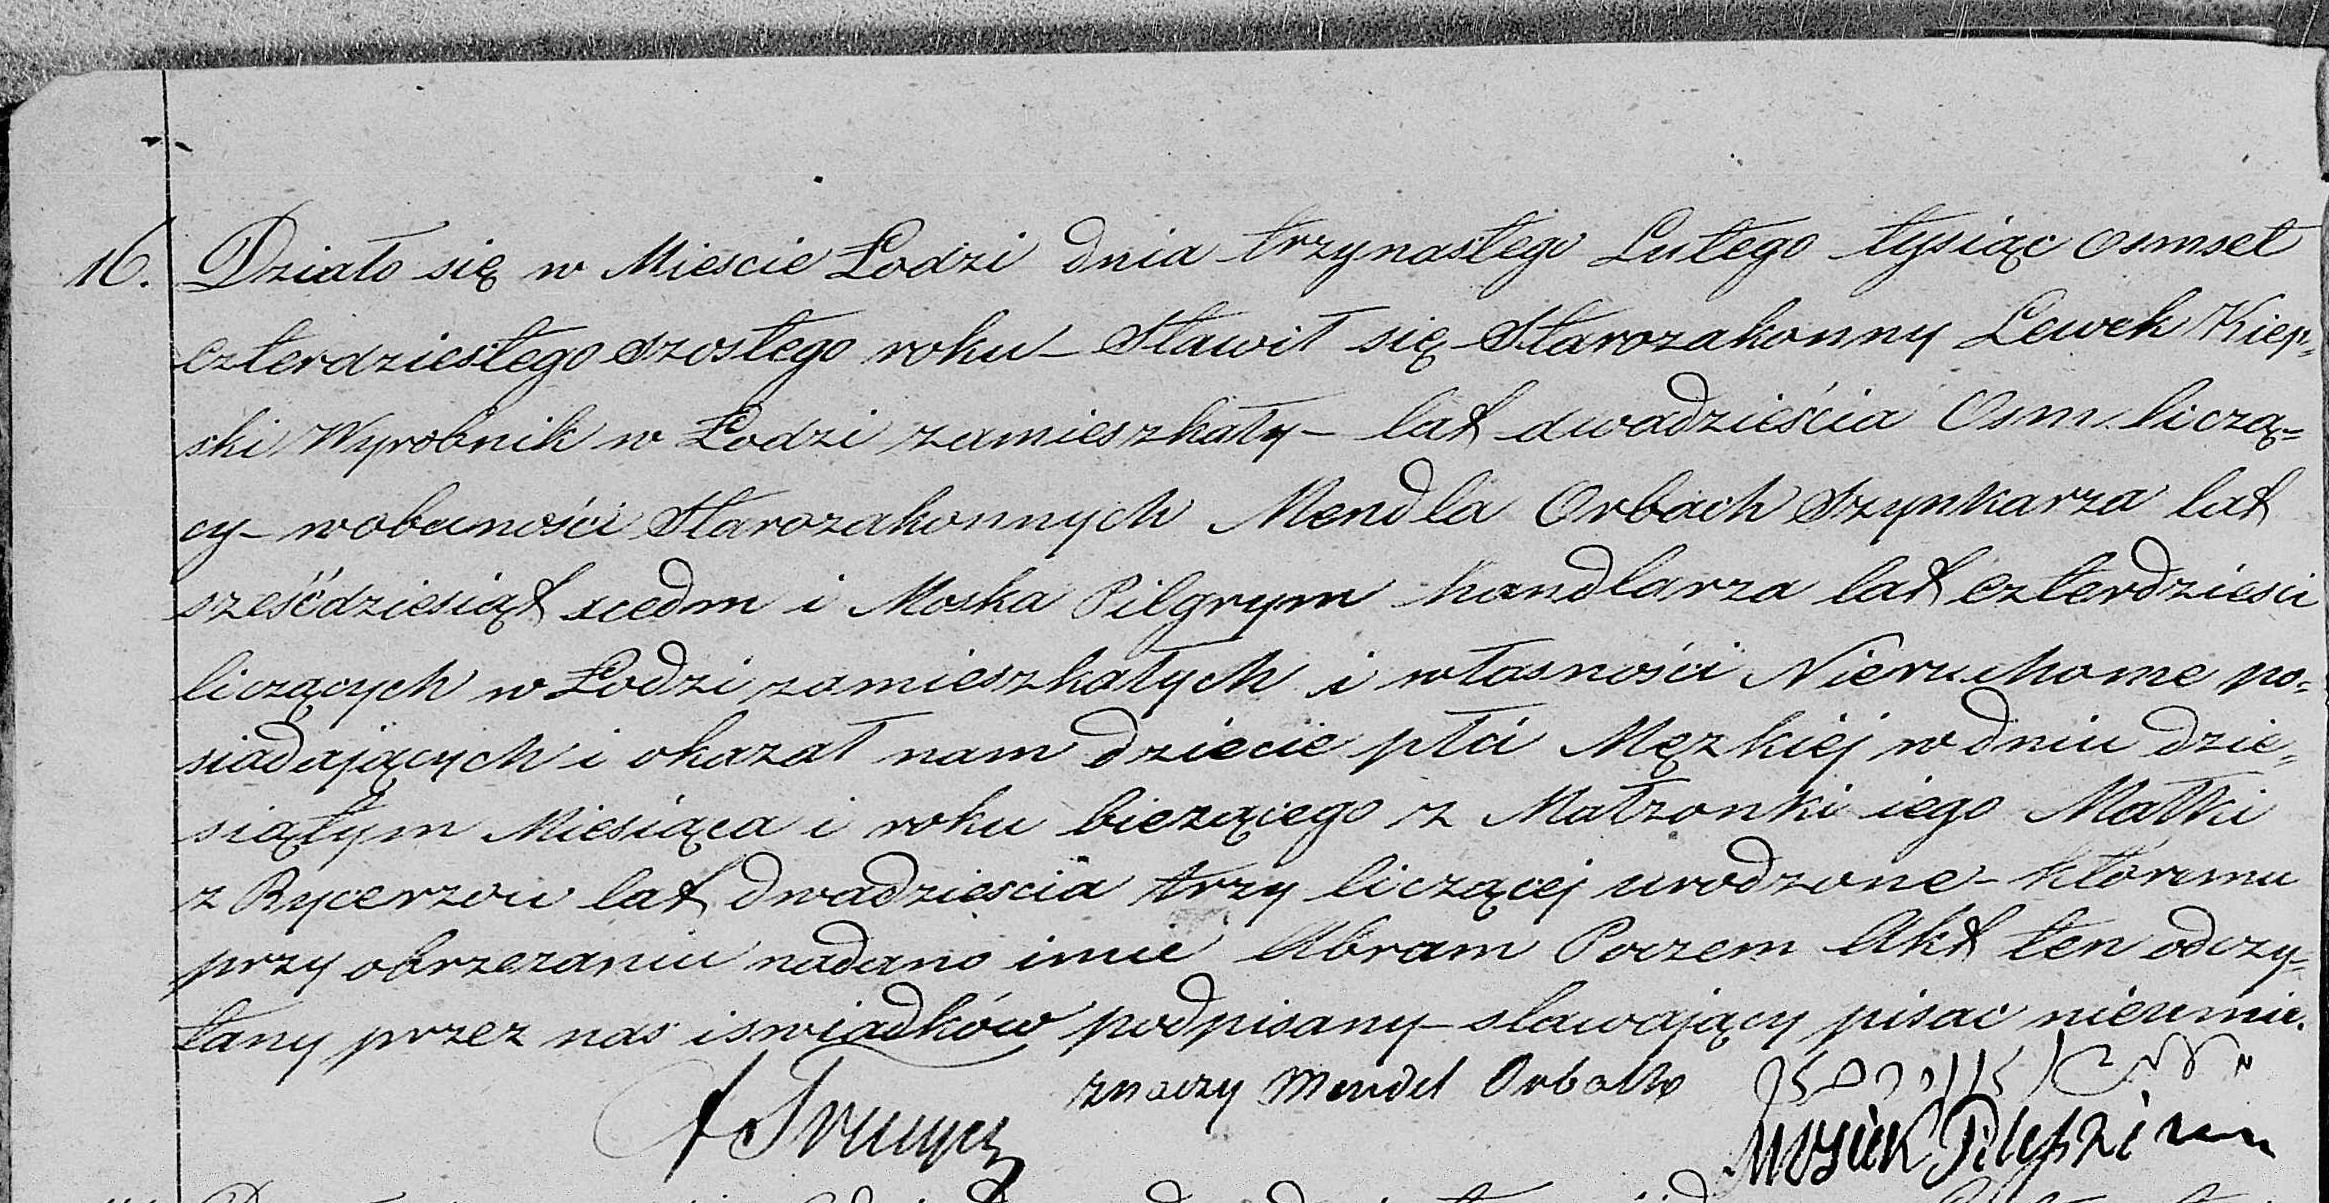 16. Działo się w Miescie Łodzi dnia trzynastego Lutego tysiąc osmset
czterdziestego szostego roku – Stawił się Starozakonny Lewek Kiep-
ski Wyrobnik w Łodzi zamieszkały – lat dwadzieścia Osm liczą=
cy – wobecności Starozakonnych Mendla Orbach Szynkarza lat
sześćdziesiąt siedm i Moska Pilgrym handlarza lat czterdziesci
liczących w Łodzi zamieszkałych i własności Nieruchome po=
siadających i okazał nam dziecie płci Męzkiéj w dniu dzie=
siątym Miesiąca i roku bieżącego z Małżonki iego Małki
z Rycerzow lat dwadziescia trzy liczącej urodzone – któremu
przy obrzezaniu nadano imie Abram Poczem Akt ten odczy=
tany przez nas i swiadków podpisany – stawający pisac nieumie.
znaczy Mendel Orbach